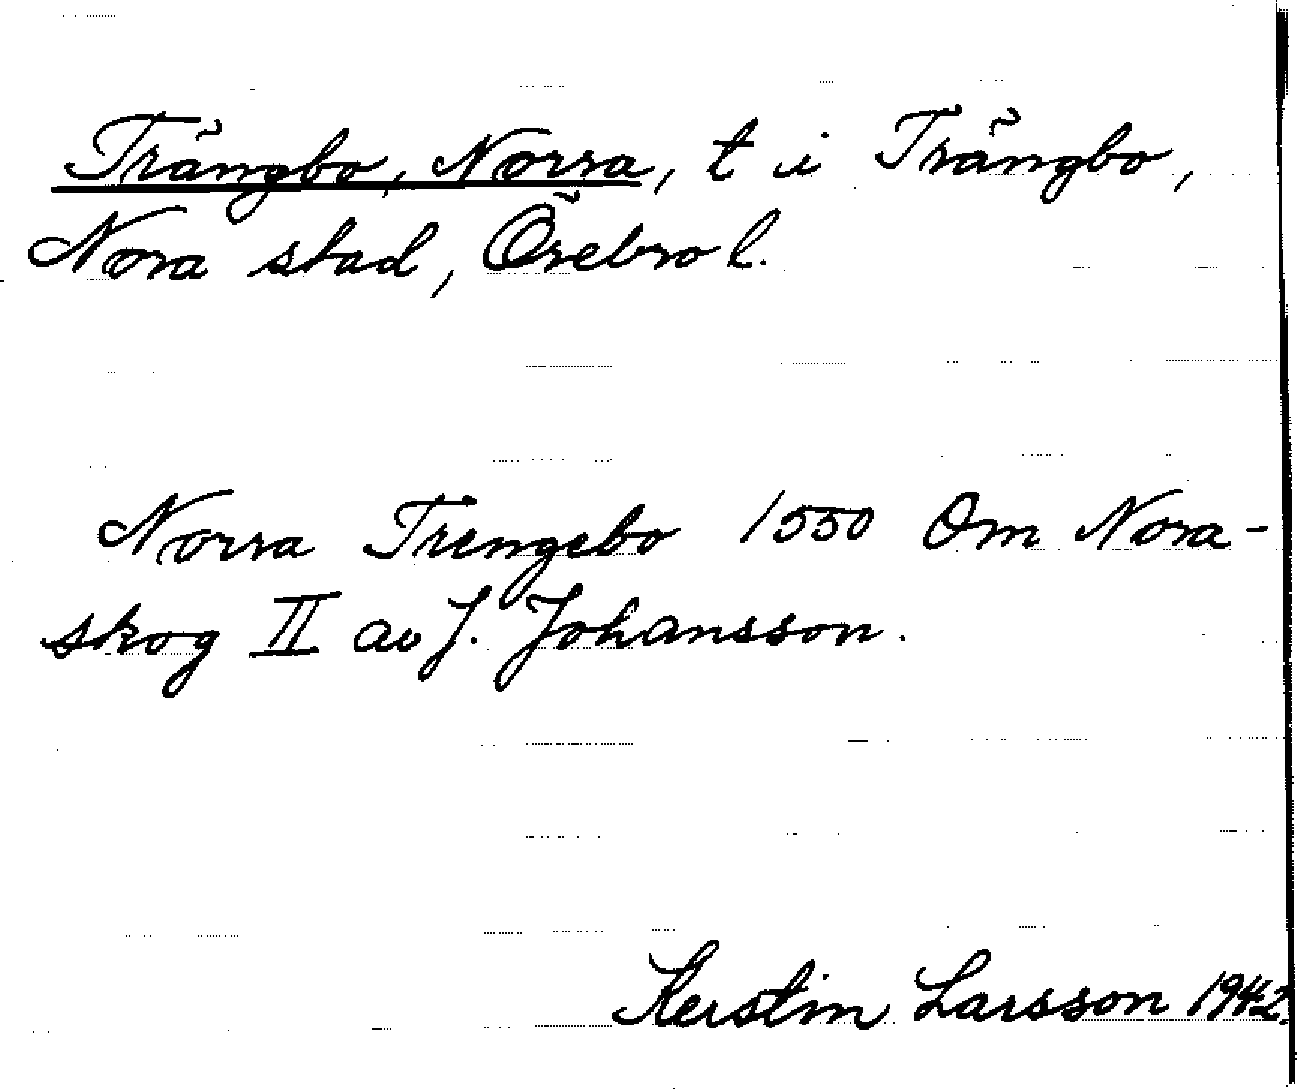 Trängbo, Norra, t i Trängbo,
Nora stad, Örebro l.
Norra Trengebo 1550 Om Nora-
skog II av J. Johansson.
Kerstin Larsson 1942.